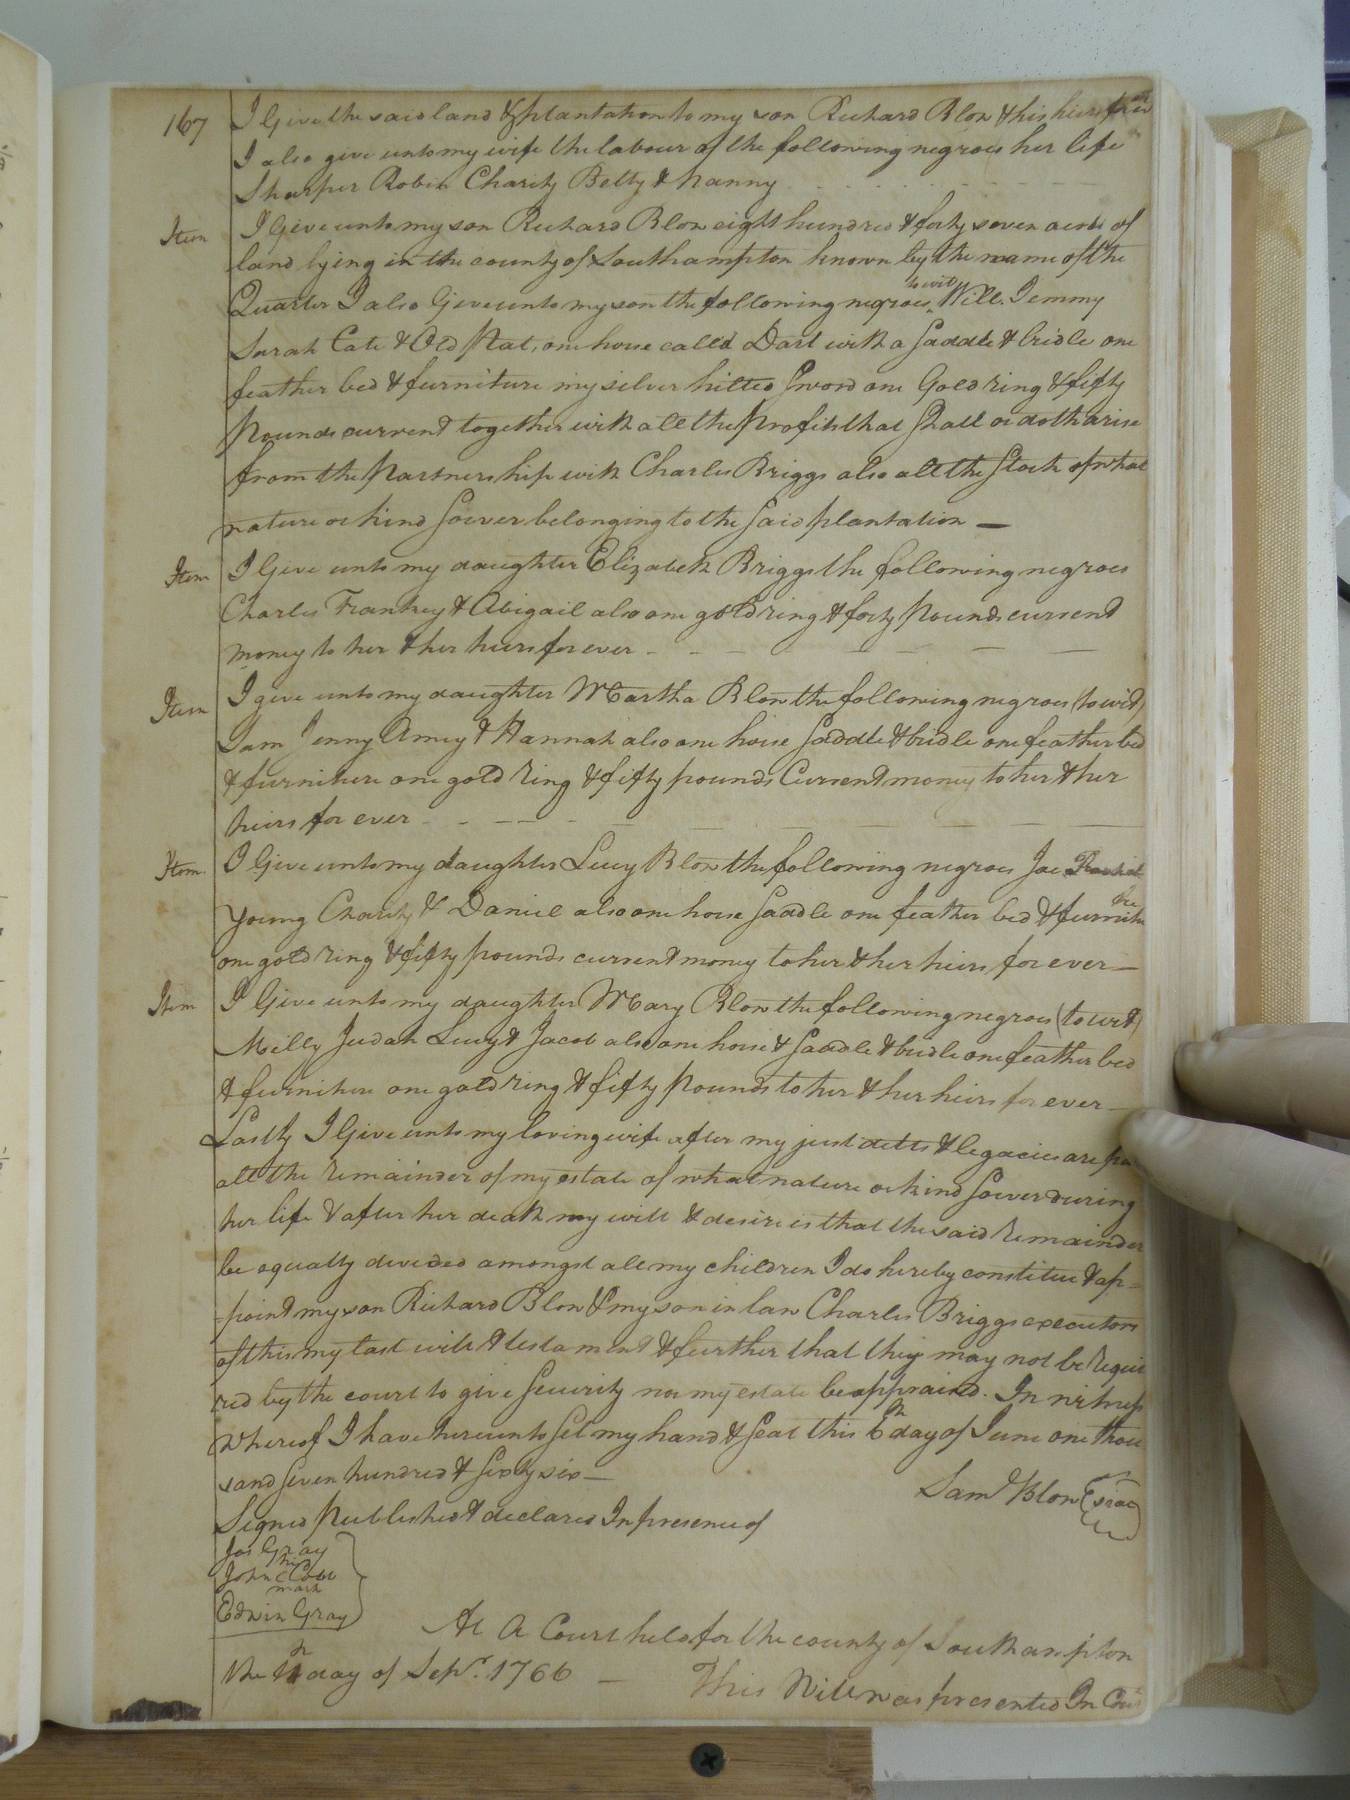 167
I Give the said land & plantation to my son Richard Blow & his heirs for ever
I also give unto my wife the labour of the following negroes her life
Sharper Robin Charity Betty & Nanny
Item I Give unto my son Richard Blow eight hundred & forty seven acres of
land lying in the county of Southampton known by the name of the
Quarter I also Give unto my son the following negroes to wit Will. Jemmy
Sarah Cate & Old Nat, one horse call'd Dart with a Saddle & bridle one
feather bed & furniture my silver hilted Sword one Gold ring & fifty
Pounds current together with all the Profits that Shall or doth arise
from the Partnership with Charles Briggs also all the Stock of what
nature or kind Soever belonging to the Said plantation —
Item I Give unto my daughter Elizabeth Briggs the following negroes
Charles Frankey & Abigail also one gold ring & forty Pounds current
money to her & her heirs for ever
Item I give unto my daughter Martha Blow the following negroes (to wit)
Sam Jenny Amey & Hannah also one horse Saddle & bridle one feather bed
& furniture one gold ring & fifty pounds Current money to her & her
heirs for ever
Item I Give unto my daughter Lucy Blow the following negroes Joe
Young Charity & Daniel also one horse Saddle one feather bed & furniture
one gold ring & fifty pounds current money to her & her heirs for ever —
Item I Give unto my daughter Mary Blow the following negroes (to wit)
Milly Judah Lucy & Jacob also one horse & Saddle & bridle one feather bed
& furniture one gold ring & fifty Pounds to her & her heirs for ever
Lastly I Give unto my loving wife after my just debts & legacies are
all the remainder of my estate of what nature or kind Soever during
her life & after her death my will & desire is that the said remainder
be equally divided amongst all my children I do hereby constitue & ap=
=point my son Richard Blow & my son in law Charles Briggs executors
of this my last will & testament & further that they may not be requi
red by the court to give Security nor my estate be appraised. In witness
Whereof I have hereunto Set my hand & Seal this 6th day of June one thou
sand Seven hundred & Sixty six —
Saml Blow (Seal)
Signed Published & declared In presence of
Jos Gray
his
John Cobb
mark
Edwin Gray
At A Court held for the county of Southampton
the day of Sepr. 1766 —
This Will was presented In